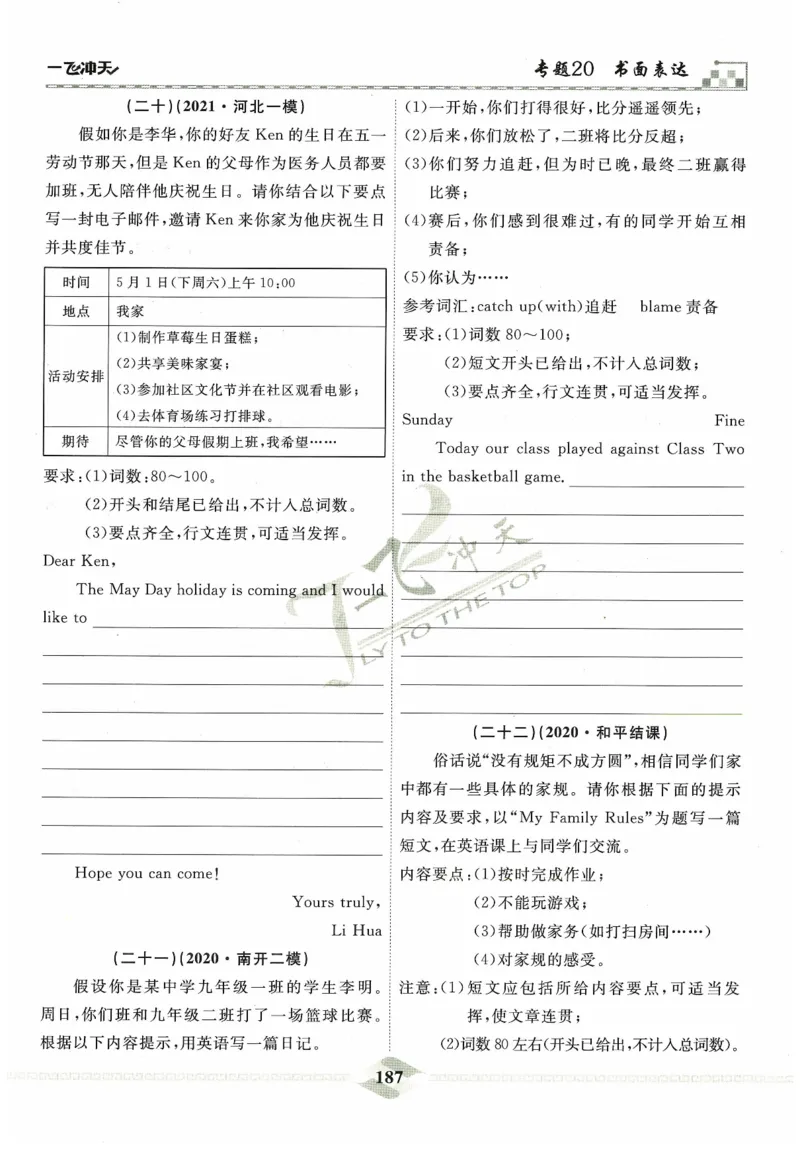 一飞冲天
专题20 书面表达
(二十)(2021·河北一模)
假如你是李华,你的好友 Ken 的生日在五一
劳动节那天,但是 Ken 的父母作为医务人员都要
加班,无人陪伴他庆祝生日。请你结合以下要点
写一封电子邮件,邀请 Ken 来你家为他庆祝生日
并共度佳节。
时间 5月1日(下周六)上午10:00
地点 我家
活动安排
(1)制作草莓生日蛋糕;
(2)共享美味家宴;
(3)参加社区文化节并在社区观看电影;
(4)去体育场练习打排球。
期待 尽管你的父母假期上班,我希望……
要求:(1)词数:80~100。
(2)开头和结尾已给出,不计入总词数。
(3)要点齐全,行文连贯,可适当发挥。
Dear Ken,
The May Day holiday is coming and I would
like to
Hope you can come!
Yours truly,
Li Hua
(二十一)(2020·南开二模)
假设你是某中学九年级一班的学生李明。
周日,你们班和九年级二班打了一场篮球比赛。
根据以下内容提示,用英语写一篇日记。
(1)一开始,你们打得很好,比分遥遥领先;
(2)后来,你们放松了,二班将比分反超;
(3)你们努力追赶,但为时已晚,最终二班赢得
比赛;
(4)赛后,你们感到很难过,有的同学开始互相
责备;
(5)你认为……
参考词汇:catch up(with)追赶 blame 责备
要求:(1)词数 80~100;
(2)短文开头已给出,不计入总词数;
(3)要点齐全,行文连贯,可适当发挥。
Sunday Fine
Today our class played against Class Two
in the basketball game.
(二十二)(2020·和平结课)
俗话说“没有规矩不成方圆”,相信同学们家
中都有一些具体的家规。请你根据下面的提示
内容及要求,以“My Family Rules”为题写一篇
短文,在英语课上与同学们交流。
内容要点:(1)按时完成作业;
(2)不能玩游戏;
(3)帮助做家务(如打扫房间……)
(4)对家规的感受。
注意:(1)短文应包括所给内容要点,可适当发
挥,使文章连贯;
(2)词数 80 左右(开头已给出,不计入总词数)。
一飞冲天
FLY TO THE TOP
187